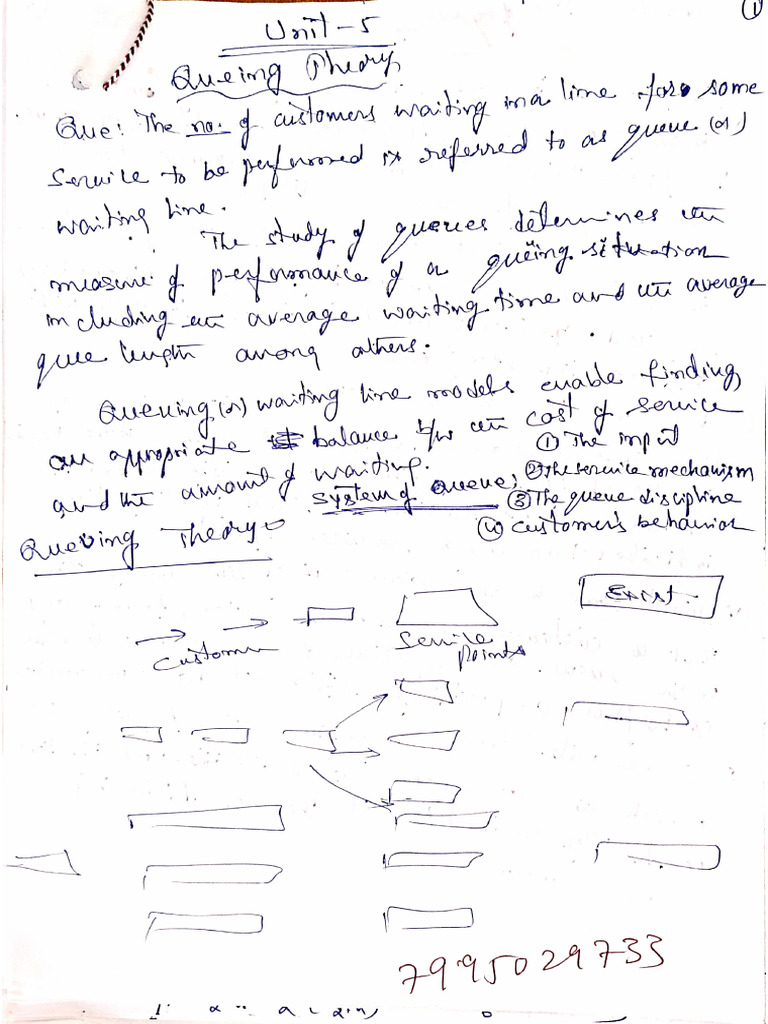 ①
Unit-5
Queing Theory
Que: The no. of customers waiting in a line for some
service to be performed is referred to as queue (or)
waiting line.
The study of queues determines the
measure of performance of a queing situation
including the average waiting time and the average
quee length among others.
Queuing (or) waiting line models enable finding
an appropriate balance b/w the cost of service
and the amount of waiting.
System of Queue: ① The input
② The service mechanism
③ The queue discipline
④ customer's behavior
Queuing Theory
Customer
Service
points
Exist.
7995029733